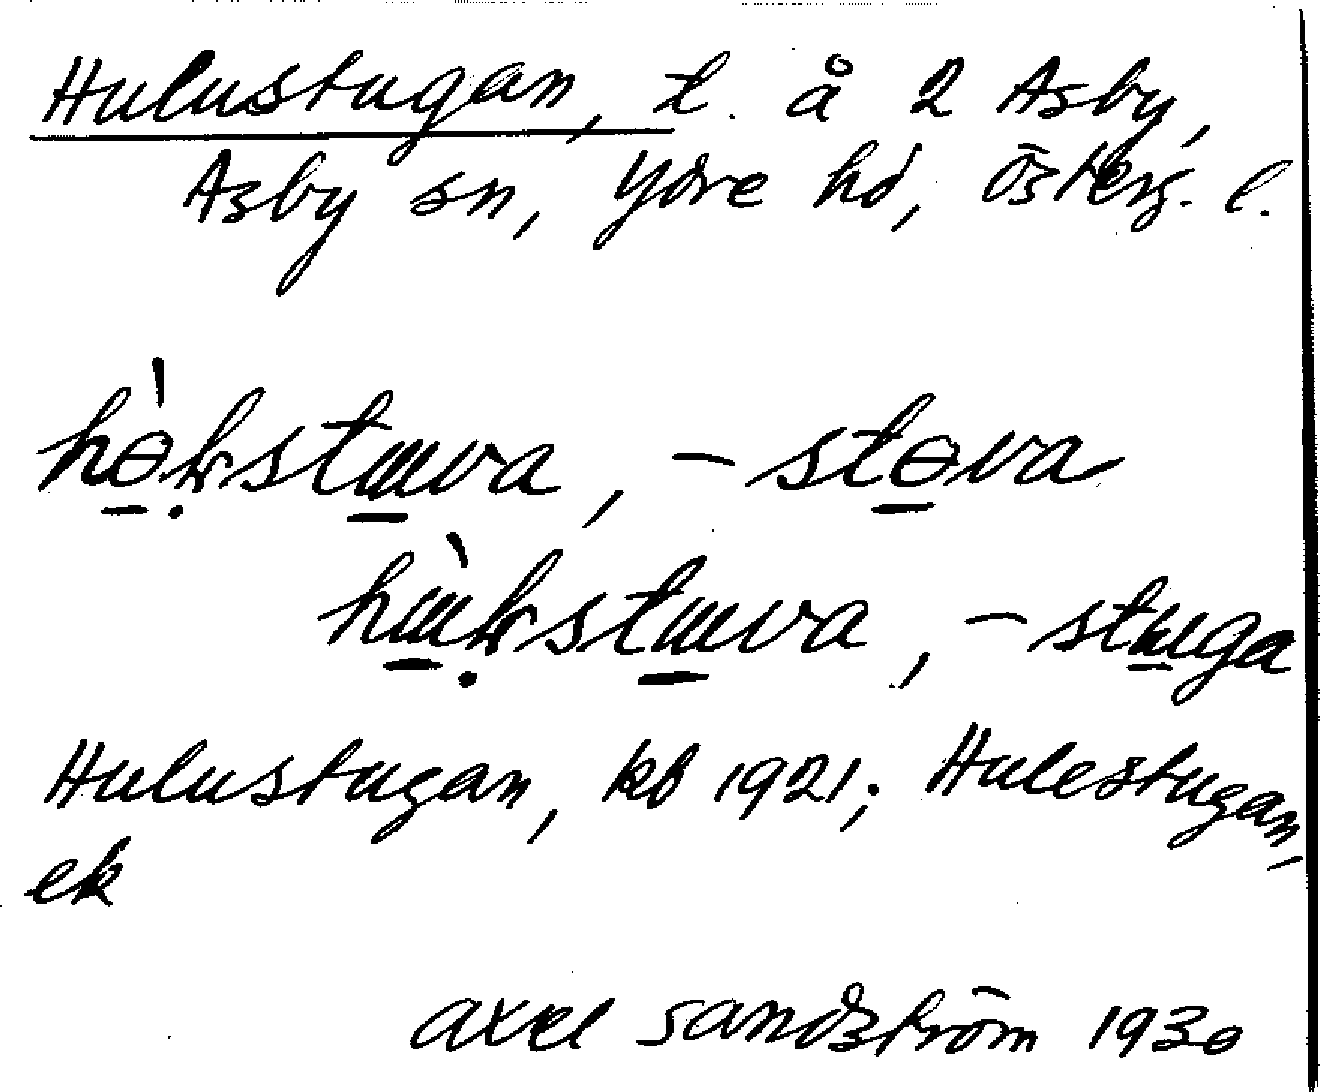 Hulustugan, t. å 2 Asby,
Asby sn, Ydre hd, Österg. l.
-stɵva
-stuga
Hulustugan, kb 1921; Hulestugan,
ek
Axel Sandström 1930